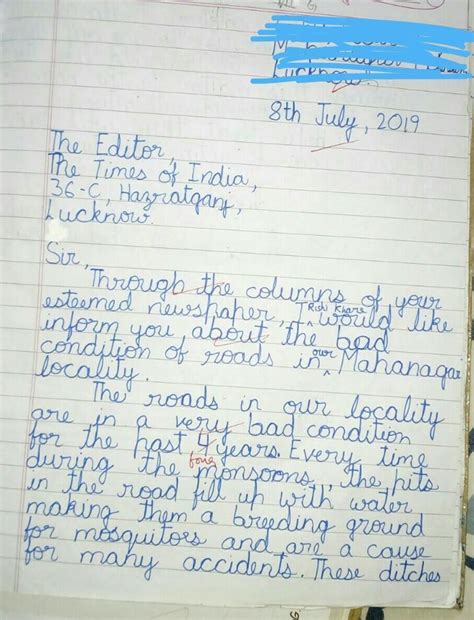 Lucknow.
8th July, 2019
The Editor,
The Times of India,
36-C, Hazratganj,
Lucknow.
Sir,
Through the columns of your
esteemed newspaper, I Rishi Khare would like
inform you about the bad
condition of roads in our Mahanagar
locality.
The roads in our locality
are in a very bad condition
for the past 4 four years. Every time
during the monsoons, the pits
in the road fill up with water
making them a breeding ground
for mosquitors and are a cause
for many accidents. These ditches